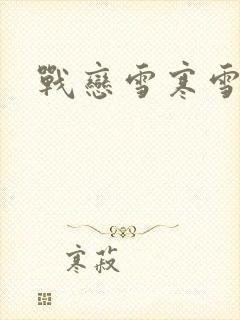 戰戀雪寒雪
寒菽